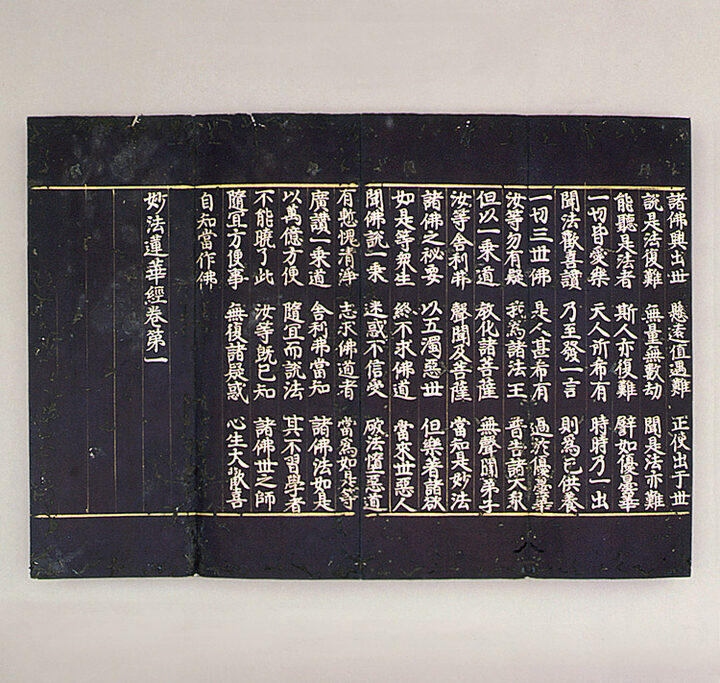 諸佛興出世 懸遠值遇難 正使出于世
說是法復難 無量無數劫 聞是法亦難
能聽是法者 斯人亦復難 譬如優曇華
一切皆愛樂 天人所希有 時時乃一出
聞法歡喜讚 乃至發一言 則為已供養
一切三世佛 是人甚希有 過於優曇華
汝等勿有疑 我為諸法王 普告諸大衆
但以一乘道 教化諸菩薩 無聲聞弟子
汝等舍利弗 聲聞及菩薩 當知是妙法
諸佛之秘要 以五濁惡世 但樂著諸欲
如是等衆生 終不求佛道 當來世惡人
聞佛說一乘 迷惑不信受 破法墮惡道
有慙愧清淨 志求佛道者 當為如是等
廣讚一乘道 舍利弗當知 諸佛法如是
以萬億方便 隨宜而說法 其不習學者
不能曉了此 汝等既已知 諸佛世之師
隨宜方便事 無復諸疑惑 心生大歡喜
自知當作佛
妙法蓮華經卷第一